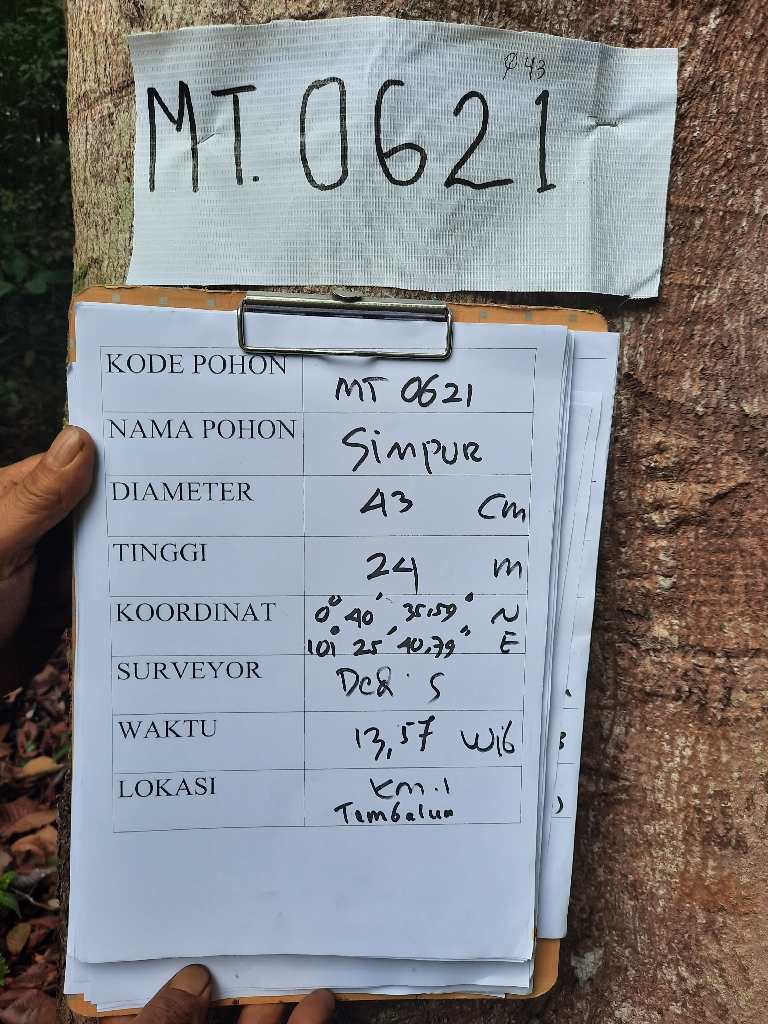 ⌀ 43
MT. 0621
KODE POHON MT 0621
NAMA POHON Simpur
DIAMETER 43 Cm
TINGGI 24 m
KOORDINAT 0° 40' 35,59" N
101° 25' 40,79" E
SURVEYOR S
WAKTU 13,57 Wib
LOKASI Km.1